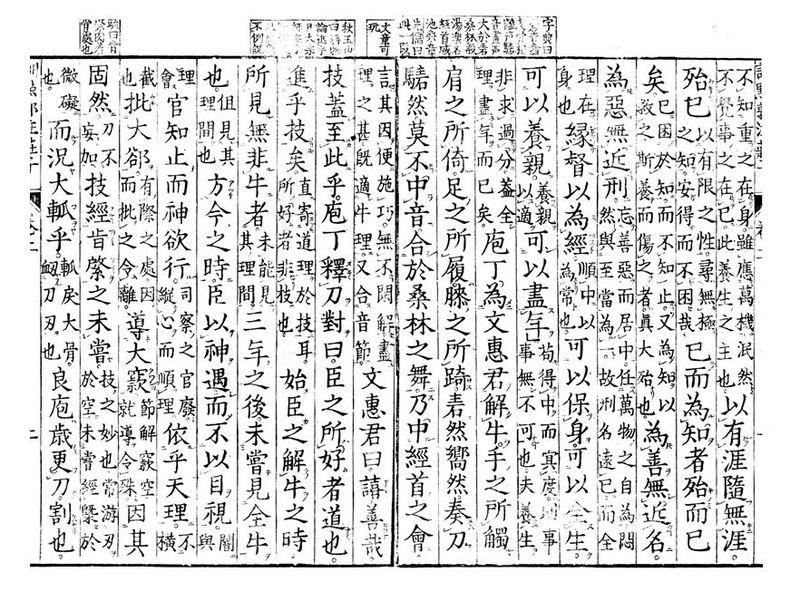 文章可
玩
不知重之在身雖應萬機泯然
不覺事之在己此養生之主也
以有涯隨無涯
殆已
以有限之性尋無極
之知安得而不困哉
已而為知者殆而已
矣
已困於知而不知止又為知以
救之斯養而傷之者真大殆也
為善無近名
為惡無近刑
忘善惡而居中任萬物之自為悶
然與至當為一故刑名遠已而全
理在
身也
緣督以為經
順中以
為常也
可以保身可以全生
可以養親
養親
以適
可以盡年
苟得中而冥度則事
事無不可也夫養生
非求過分蓋全
理盡年而已矣
庖丁為文惠君解牛手之所觸
肩之所倚足之所履膝之所踦砉然嚮然奏刀
騞然莫不中音合於桑林之舞乃中經首之會
言其因便施巧無不閑解盡
理之甚既適牛理又合音節
文惠君曰譆善哉
技蓋至此乎庖丁釋刀對曰臣之所好者道也
進乎技矣
直寄道理於技耳
所好者非技也
始臣之解牛之時
所見無非牛者
未能見
其理間
三年之後未嘗見全牛
也
但見其
理間也
方今之時臣以神遇而不以目視
闇
與
理
會
官知止而神欲行
司察之官廢
縱心而順理
依乎天理
不
橫
截
也
批大郤
有際之處因
而批之令離
導大窾
節解窾空
就導令殊
因其
固然
刀不
妄加
技經肯綮之未嘗
技之妙也常游刃
於空未嘗經槩於
微礙
也
而況大軱乎
軱戾大骨
衂刀刃也
良庖歲更刀割也